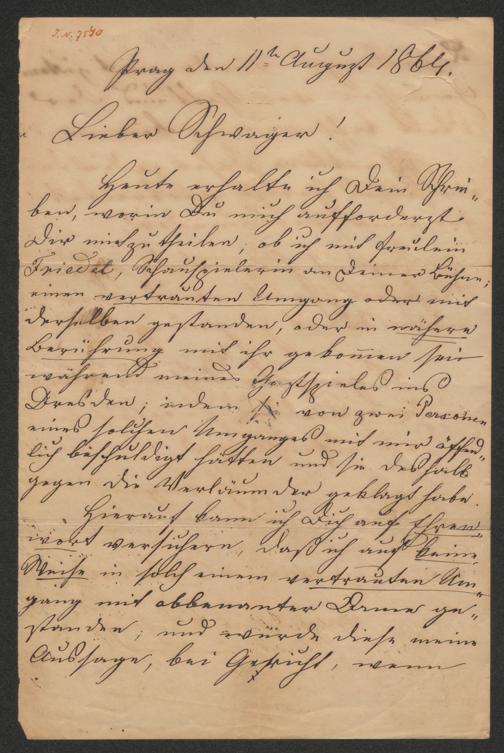 J. N. 7540
Prag den 11th August 1864.
Lieber Schwager!
Heute erhalte ich Dein Schrei„
ben, worin Du mich aufforderst
Dir mitzutheilen, ob ich mit Fräulein
Friedel, Schauspielerin an Deiner Bühne;
einen vertrauten Umgang oder mit
derselben gestanden, oder in nähere
Berührung mit ihr gekommen sei
während meines Gastspieles in
Dresden; indem von zwei Personen
eines solchen Umganges mit mir öffent„
lich beschuldigt hätten und sie deshalb
gegen die Verläumder geklagt habe.
Hierauf kann ich Dich auf Ehren„
wort versichern, daß ich auf keine
Weise in solch einem vertrauten Um„
gang mit obbenanter Dame ge„
standen; und würde diese meine
Aussage, bei Gericht, wenn